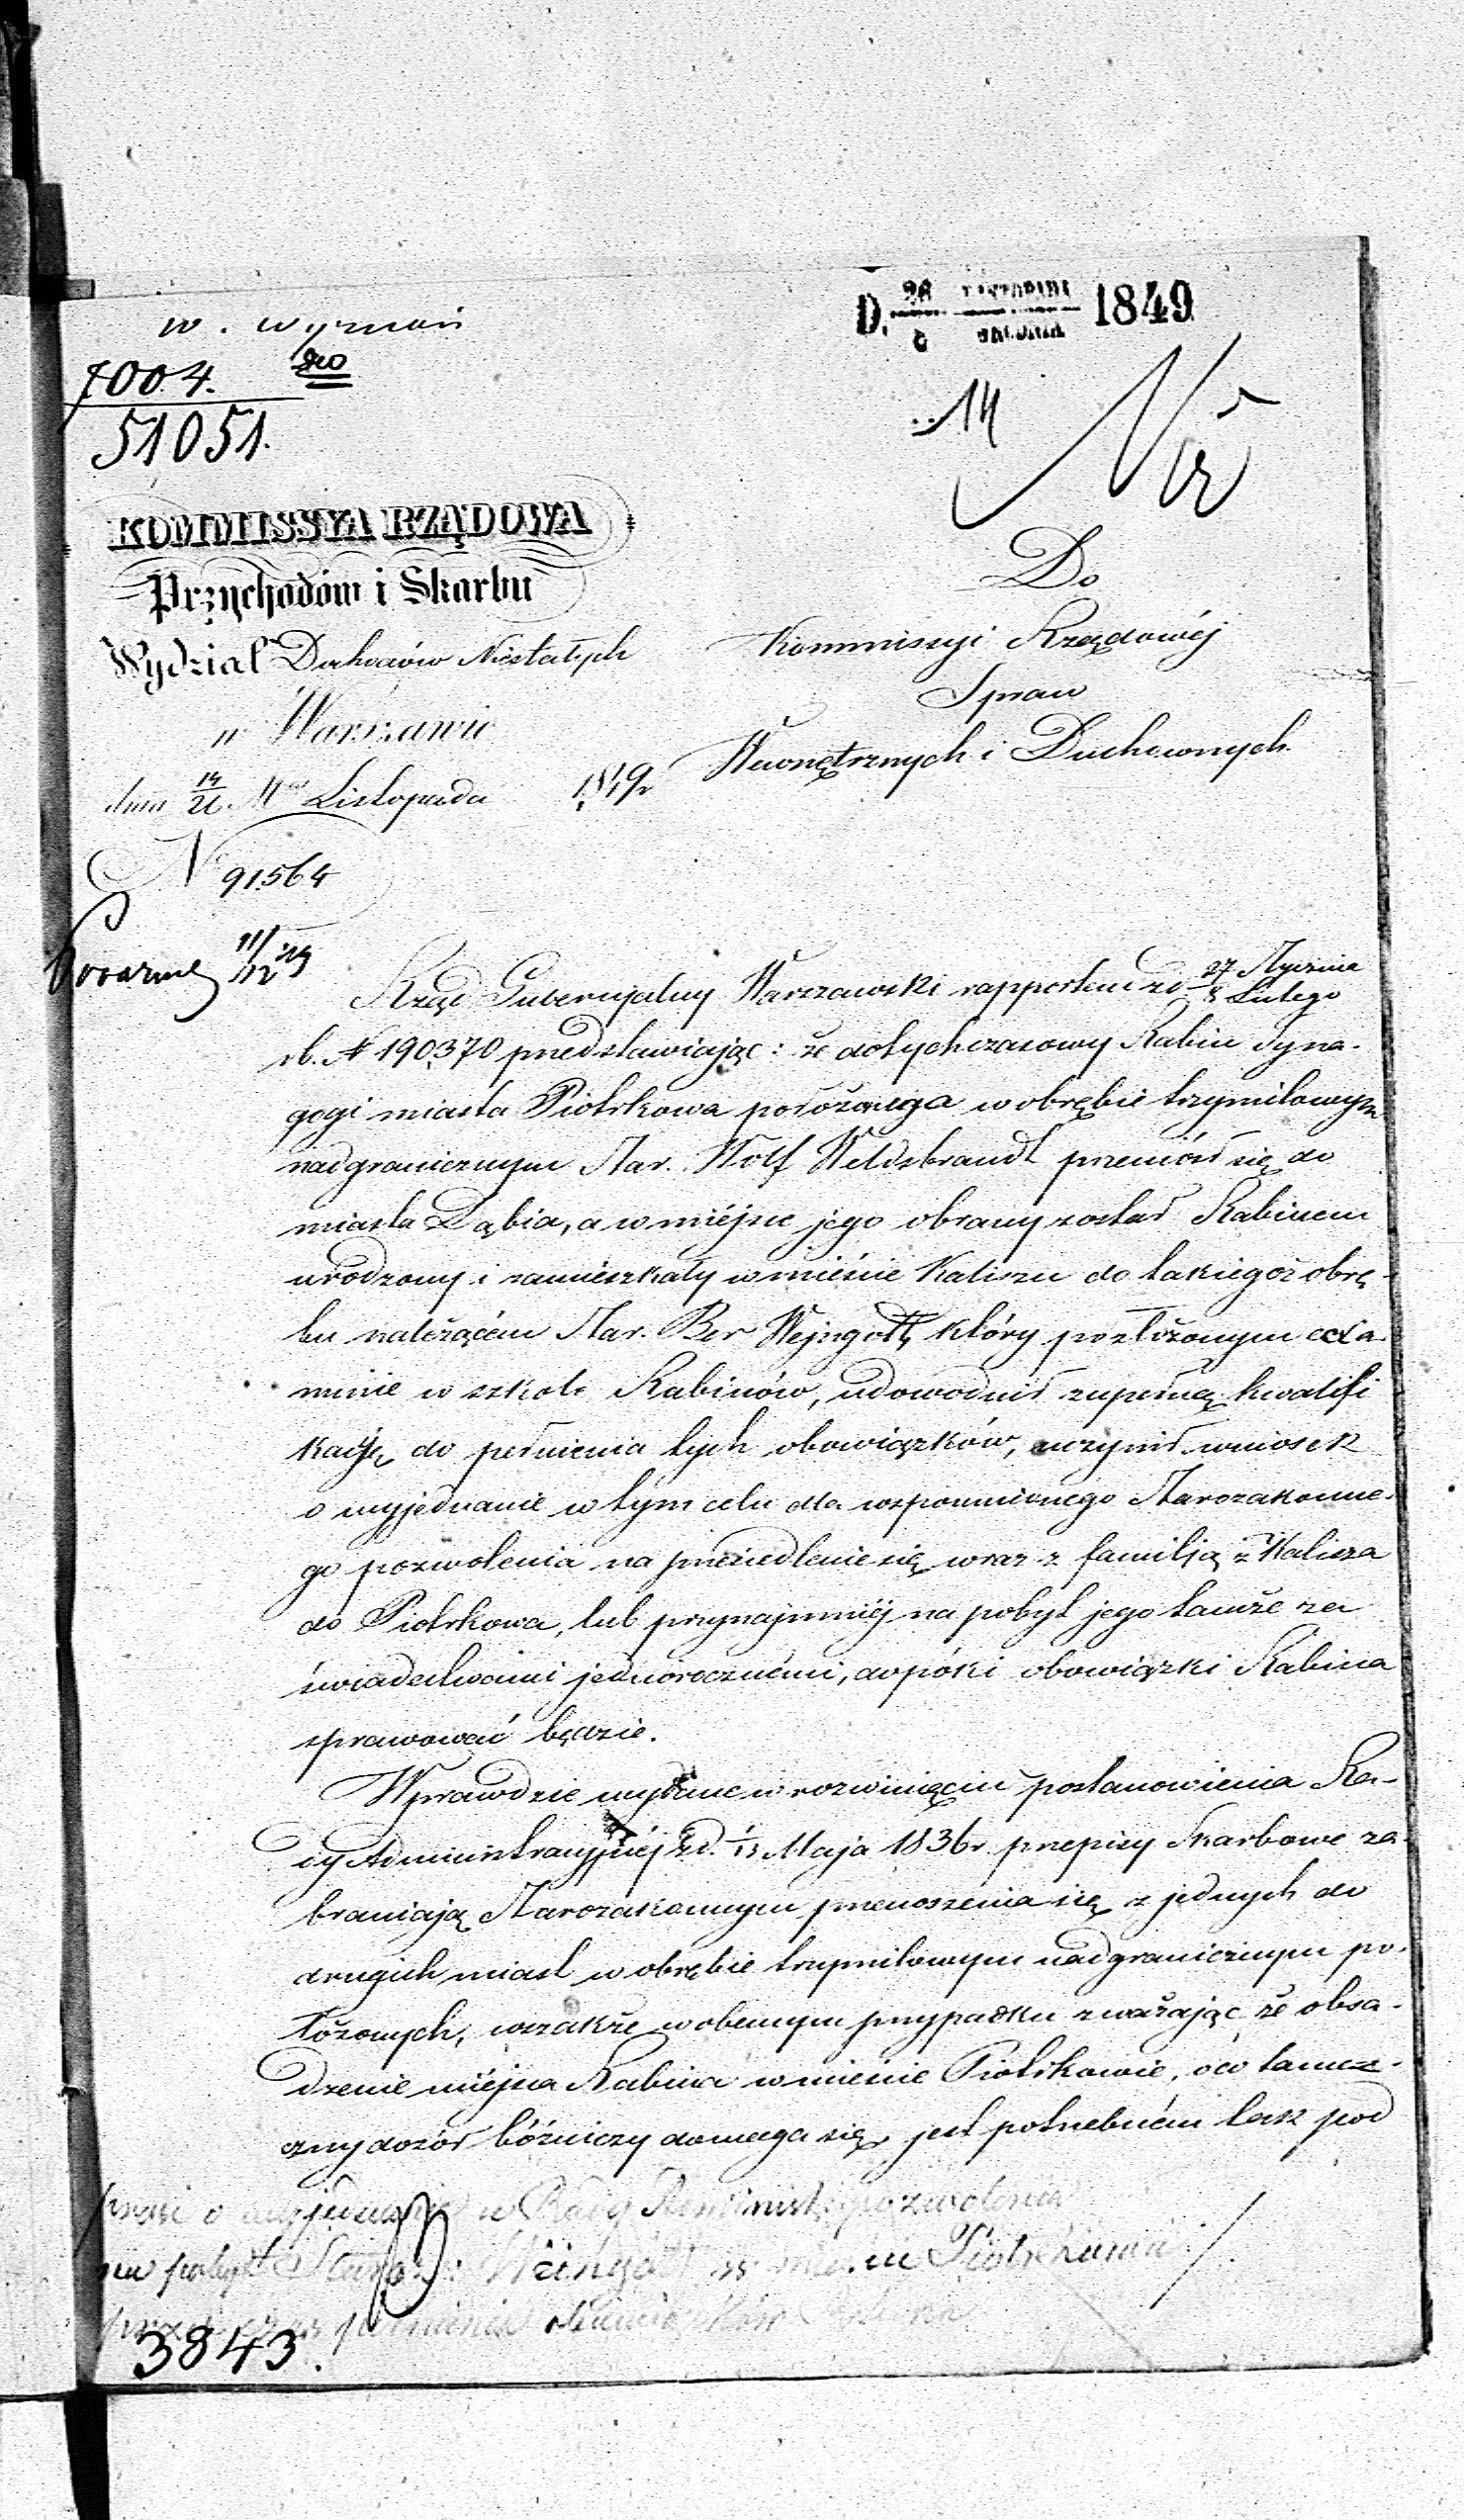 w. wyznań
D. 26 LISTOPADA 1849
7004.
51051.
14
KOMMISSYA RZĄDOWA
Przychodów i Skarbu
Wydział Dochodów Niestałych
w Warszawie
dnia 14 Mca Listopada 1849r
N 91564
11/12 49
Do
Kommissyi Rządowéj
Spraw
Wewnętrznych i Duchownych.
Rząd Gubernijalny Warszawski rapportem z d. 27 Stycznia / 8 Lutego
rb. N 190,370 przedstawiając: że dotychczasowy Rabin Syna-
gogi miasta Piotrkowa położonego w obrębie trzymilowym
nadgranicznym Star. Wolf Weldsbrandt przeniósł się do
miasta Dąbia, a w miéjsce jego obrany został Rabinem
urodzony i zamieszkały w mieście Kaliszu do takiegoż obrę-
bu należącém Star. Ber Wejngott, który po złożonym exa-
minie w szkole Rabinów, udowodnił zupełną kwalifi
kacyę do pełnienia tych obowiązków, uczynił wniosek
o wyjednanie w tym celu dla wspomnionego Starozakonne-
go pozwolenia na przesiedlenie się wraz z familją z Kalisza
do Piotrkowa, lub przynajmniéj na pobyt jego tamże za
świadectwami jednorocznémi, dopóki obowiązki Rabina
sprawować będzie.
Wprawdzie wydane w rozwinięciu postanowienia Ra-
dy Administracyjnéj z d. 1/13 Maja 1836r. przepisy Skarbowe za-
braniają Starozakonnym przenoszenia się z jednych do
drugich miast w obrębie trzymilowym nadgranicznym po-
łożonych, wszakże w obecnym przypadku zważając że obsa-
dzenie miéjsca Rabina w mieście Piotrkowie, o co tamecz-
czny dozór bóżniczy domaga się, jest potrzebném tak pod
prosi o wyjednanie w Rady Administr. pozwolenia
na pobyt Staroz: Weingott w mieście Piotrkowie
przez czas pełnienia obowiązków
3843.